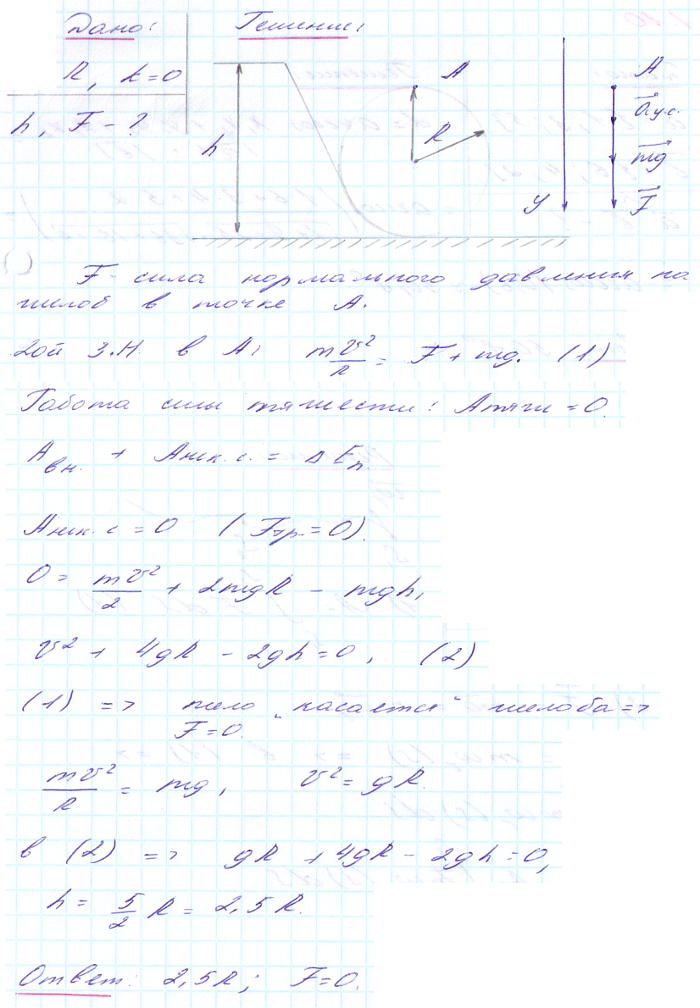 Дано:
Решение:
R, k=0
h, F - ?
h
A
R
y
A
a ц.с.
mg
F
F - сила нормального давления на
желоб в точке A.
2ой З.Н в A: mv²/R = F + mg. (1)
Работа силы тяжести: Aтяж = 0.
Aвн. + Aнк.с. = ΔEп.
Aнк.с = 0 (Fтр. = 0).
0 = mv²/2 + 2mgR - mgh,
v² + 4gR - 2gh = 0, (2)
(1) => тело "касается" желоба =>
F = 0.
mv²/R = mg, v² = gR.
в (2) => gR + 4gR - 2gh = 0,
h = 5/2 R = 2,5R.
Ответ: 2,5R; F=0.